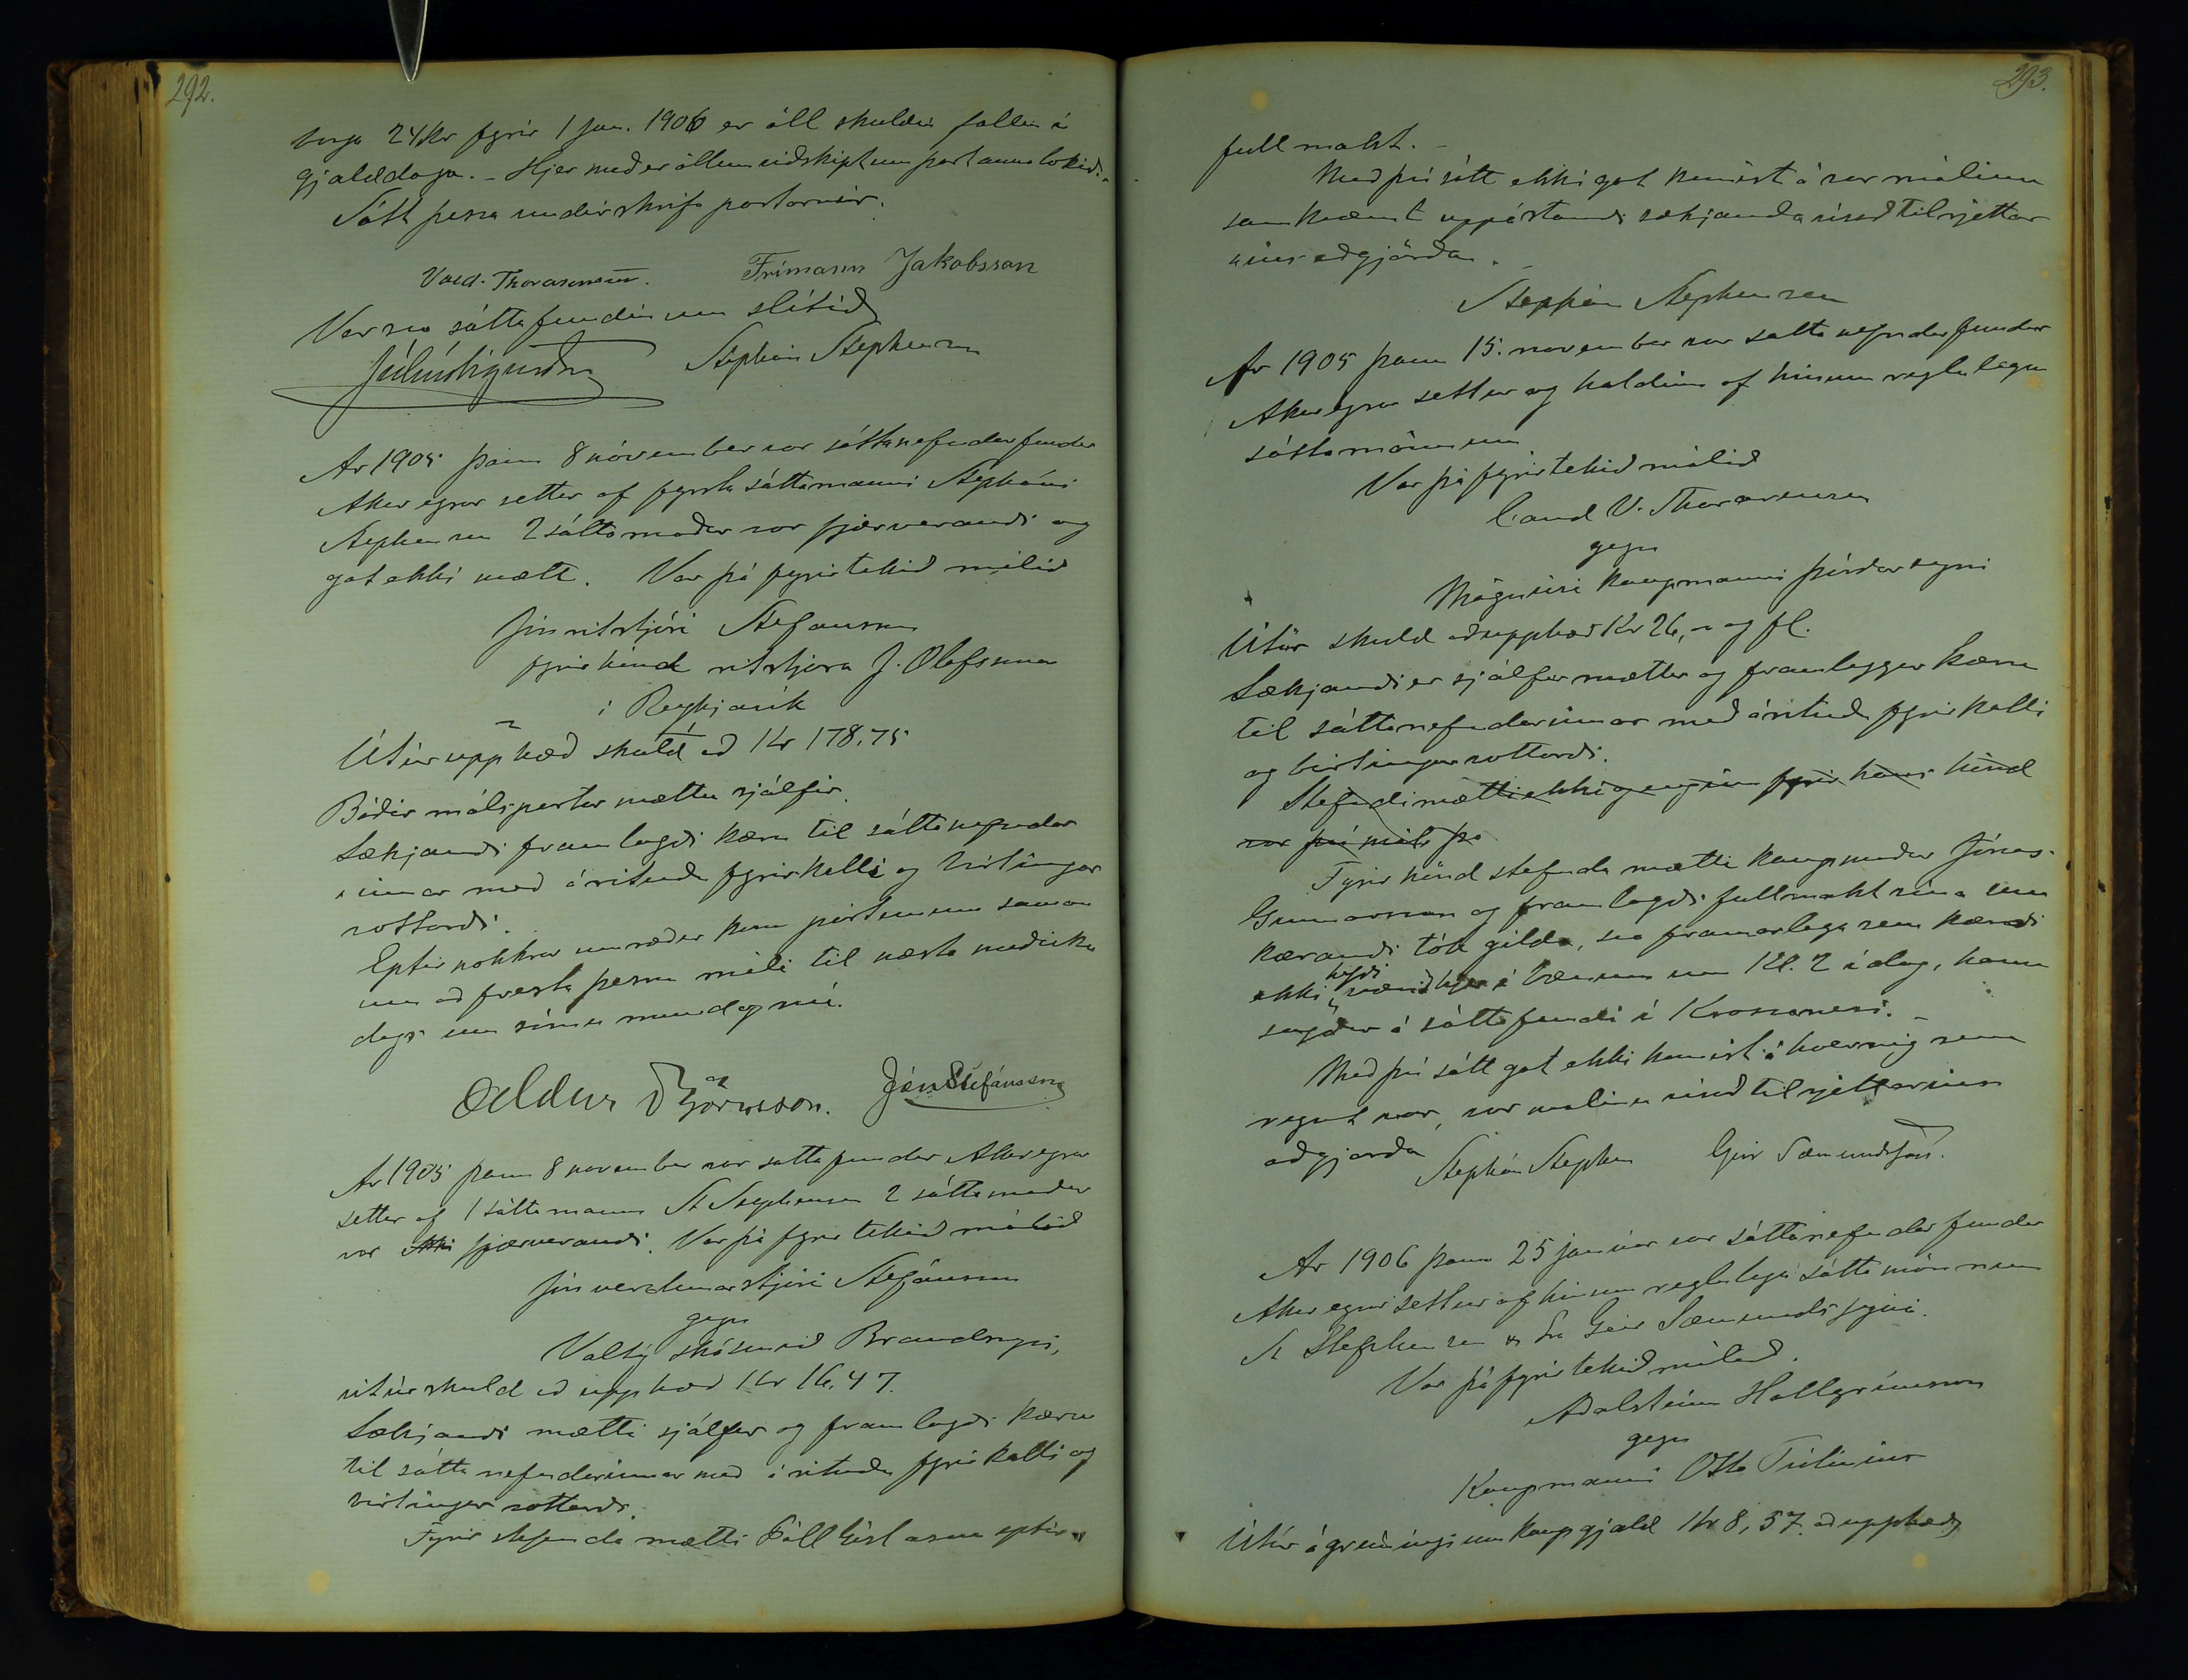 292.
borga 24 Kr fyrir 1 Jan. 1906 er öll skuldin fallin í
gjalddaga. - Hjer með er öllum viðskiptum partanna lokið. -
Sátt þessa undirskrifa partarnir.
Vald. Thorarensen. Frímann Jakobsson
Var svo sáttafundinum slitið
Júlíus Sigurðss Stephán Stephensen
Ar 1905 þann 8 nóvember var sáttanefndarfundur
Akureyrar settur af fyrsta sáttamanni Stepháni
Stephensen 2 sáttamaður var fjærverandi og
gat ekki mætt. Var þá fyrirtekið málið
Jón ritstjóri Stefánsson
fyrir hönd ritstjora J. Olafssonar
í Reykjavík
Útúr upphæð skuld að Kr 178,75
Báðir málspartar mættu sjálfir.
Sækjandi framlagði kæru til sáttanefndar
innar með árituðu fyrirkalli og birtingar
vottorði.
Eptir nokkrar umræður kom pörtunum saman
um að fresta þessu máli til næsta miðviku
dags um sama mund og nú.
Oddur Björnsson. Jón Stefánsson
Ar 1905 þann 8 november var sattafundur Akureyrar
settur af 1 sáttamanni St Stephensen 2 sáttamaður
var ekki fjærverandi. Var þá fyrirtekið málið
Jón verslunarstjóri Stefánsson
gegn
Valtý skósmið Brandssyni,
útúr skuld að upphæð Kr 16,47.
Sækjandi mætti sjálfur og framlagði kæru
til sáttanefndarinnar með árituðu fyrirkalli og
birtingar vottorði.
Fyrir stefnda mætti Páll Gíslason eptir
293.
fullmakt. -
Með því sátt ekki gat komist á var málinu
samkvæmt uppástandi sækjanda vísað til rjettar
innar aðgjörða.
Stephán Stephensen
Ar 1905 þann 15. november var satta nefndarfundur
Akureyrar settur og haldinn af hinum reglulegu
sáttamönnum
Var þá fyrirtekið málið
Cand V. Thorarensen
gegn
Magnúsi kaupmanni Þórðarsyni
Útúr skuld að upphæð Kr 26,- og fl.
Sækjandi er sjálfur mættur og framleggur kæru
til sáttanefndarinnar með árituðu fyrirkalli
og birtingarvottorði.
Stefndi mætti ekki og enginn fyrir hans hönd
var því máls þe
Fyrir hönd stefnda mætti kaupmaður Jónas
Gunnarsson og framlagði fullmakt sína sem
kærandi tók gilda, svo framarlega sem kærði
ekki hefði verið hjer í bænum um Kl. 2 í dag, hann
sagður á sáttafundi í Krossanesi. -
Með því sátt gat ekki komist á hvernig sem
reynt var, var málinu vísað til rjettarinnar
aðgjorða
Stephán Stephen Geir Sæmundsson.
Ar 1906 þann 25 januar var sáttanefndar fundur
Akureyrar settur af hinum reglulegu sáttamönnum
St Stephensen & Sra Geir Sæmundssyni.
Var þá fyrirtekið málið.
Aðalsteinn Hallgrímsson
gegn
Kaupmanni Otto Tulinius
Útúr ágreiningi um kaupgjald Kr 8,57. að upphæð